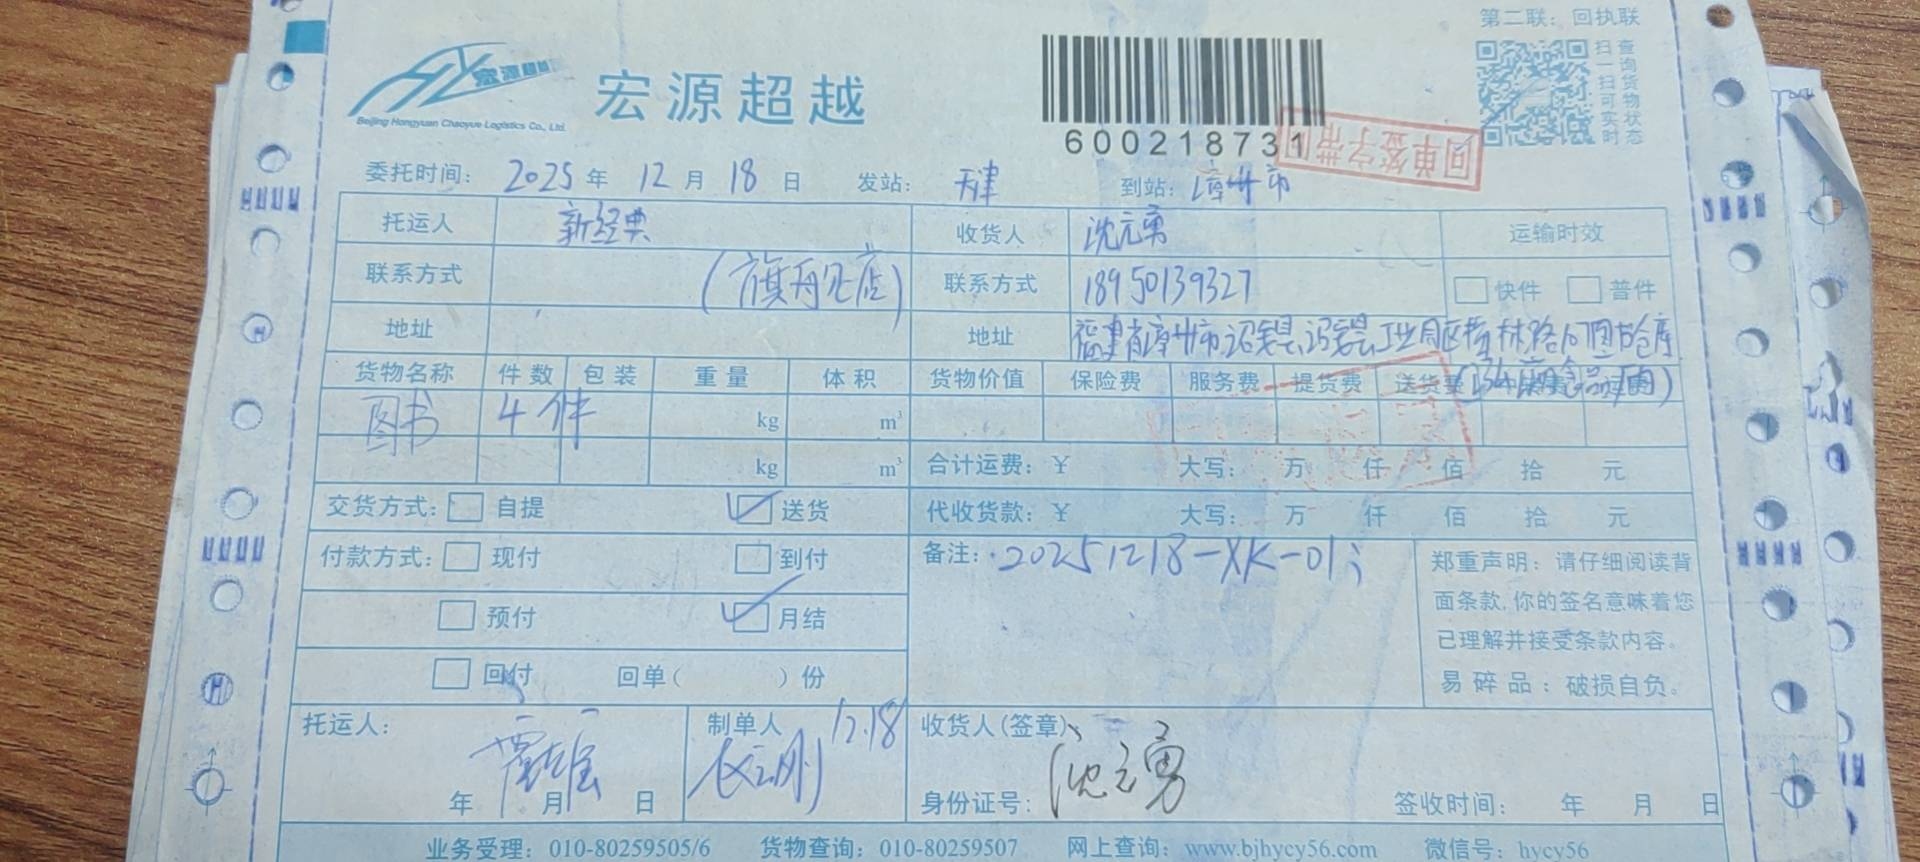 第二联：回执联
宏源超越
Beijing Hongyuan Chaoyue Logistics Co., Ltd.
宏源超越
600218731
回单签字带回
扫一扫可实时
查询货物状态
委托时间：2025年12月18日 发站：天津 到站：漳州市
托运人 新经典 收货人 沈元勇 运输时效
联系方式 (旗舟仓店) 联系方式 18950139327 快件 普件
地址 地址 福建省漳州市诏安县诏安县工业园区 林路 图书仓库
货物名称 件数 包装 重量 体积 货物价值 保险费 服务费 提货费 送货费
图书 4件 kg m³
kg m³ 合计运费：¥ 大写： 万 仟 佰 拾 元
交货方式： 自提 送货 代收货款：¥ 大写： 万 仟 佰 拾 元
付款方式： 现付 到付 备注：20251218-XK-01；
预付 月结
回付 回单（ ）份
郑重声明：请仔细阅读背
面条款,你的签名意味着您
已理解并接受条款内容。
易碎品：破损自负。
托运人： 制单人 12.18 收货人(签章) 沈元勇
年 月 日 身份证号： 签收时间： 年 月 日
业务受理：010-80259505/6 货物查询：010-80259507 网上查询：www.bjhycy56.com 微信号：hycy56